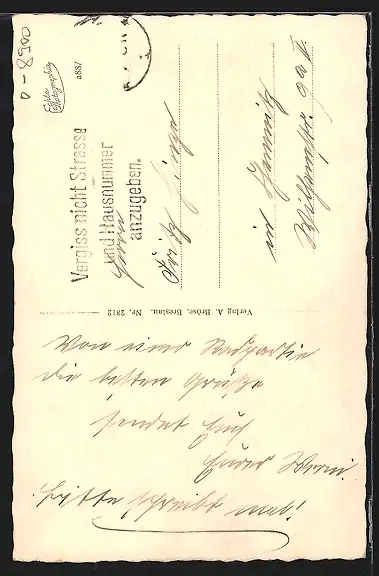 D-8900
Echte
Photographie
a887
Vergiss nicht Strasse
und Hausnummer
anzugeben.
Herrn
Fritz
in Chemnitz
Verlag A. Bröse, Breslau. Nr. 2812
Von einer Radpartie
die besten Grüße
sendet Euch
Eurer Werni.
Bitte schreibt mal!